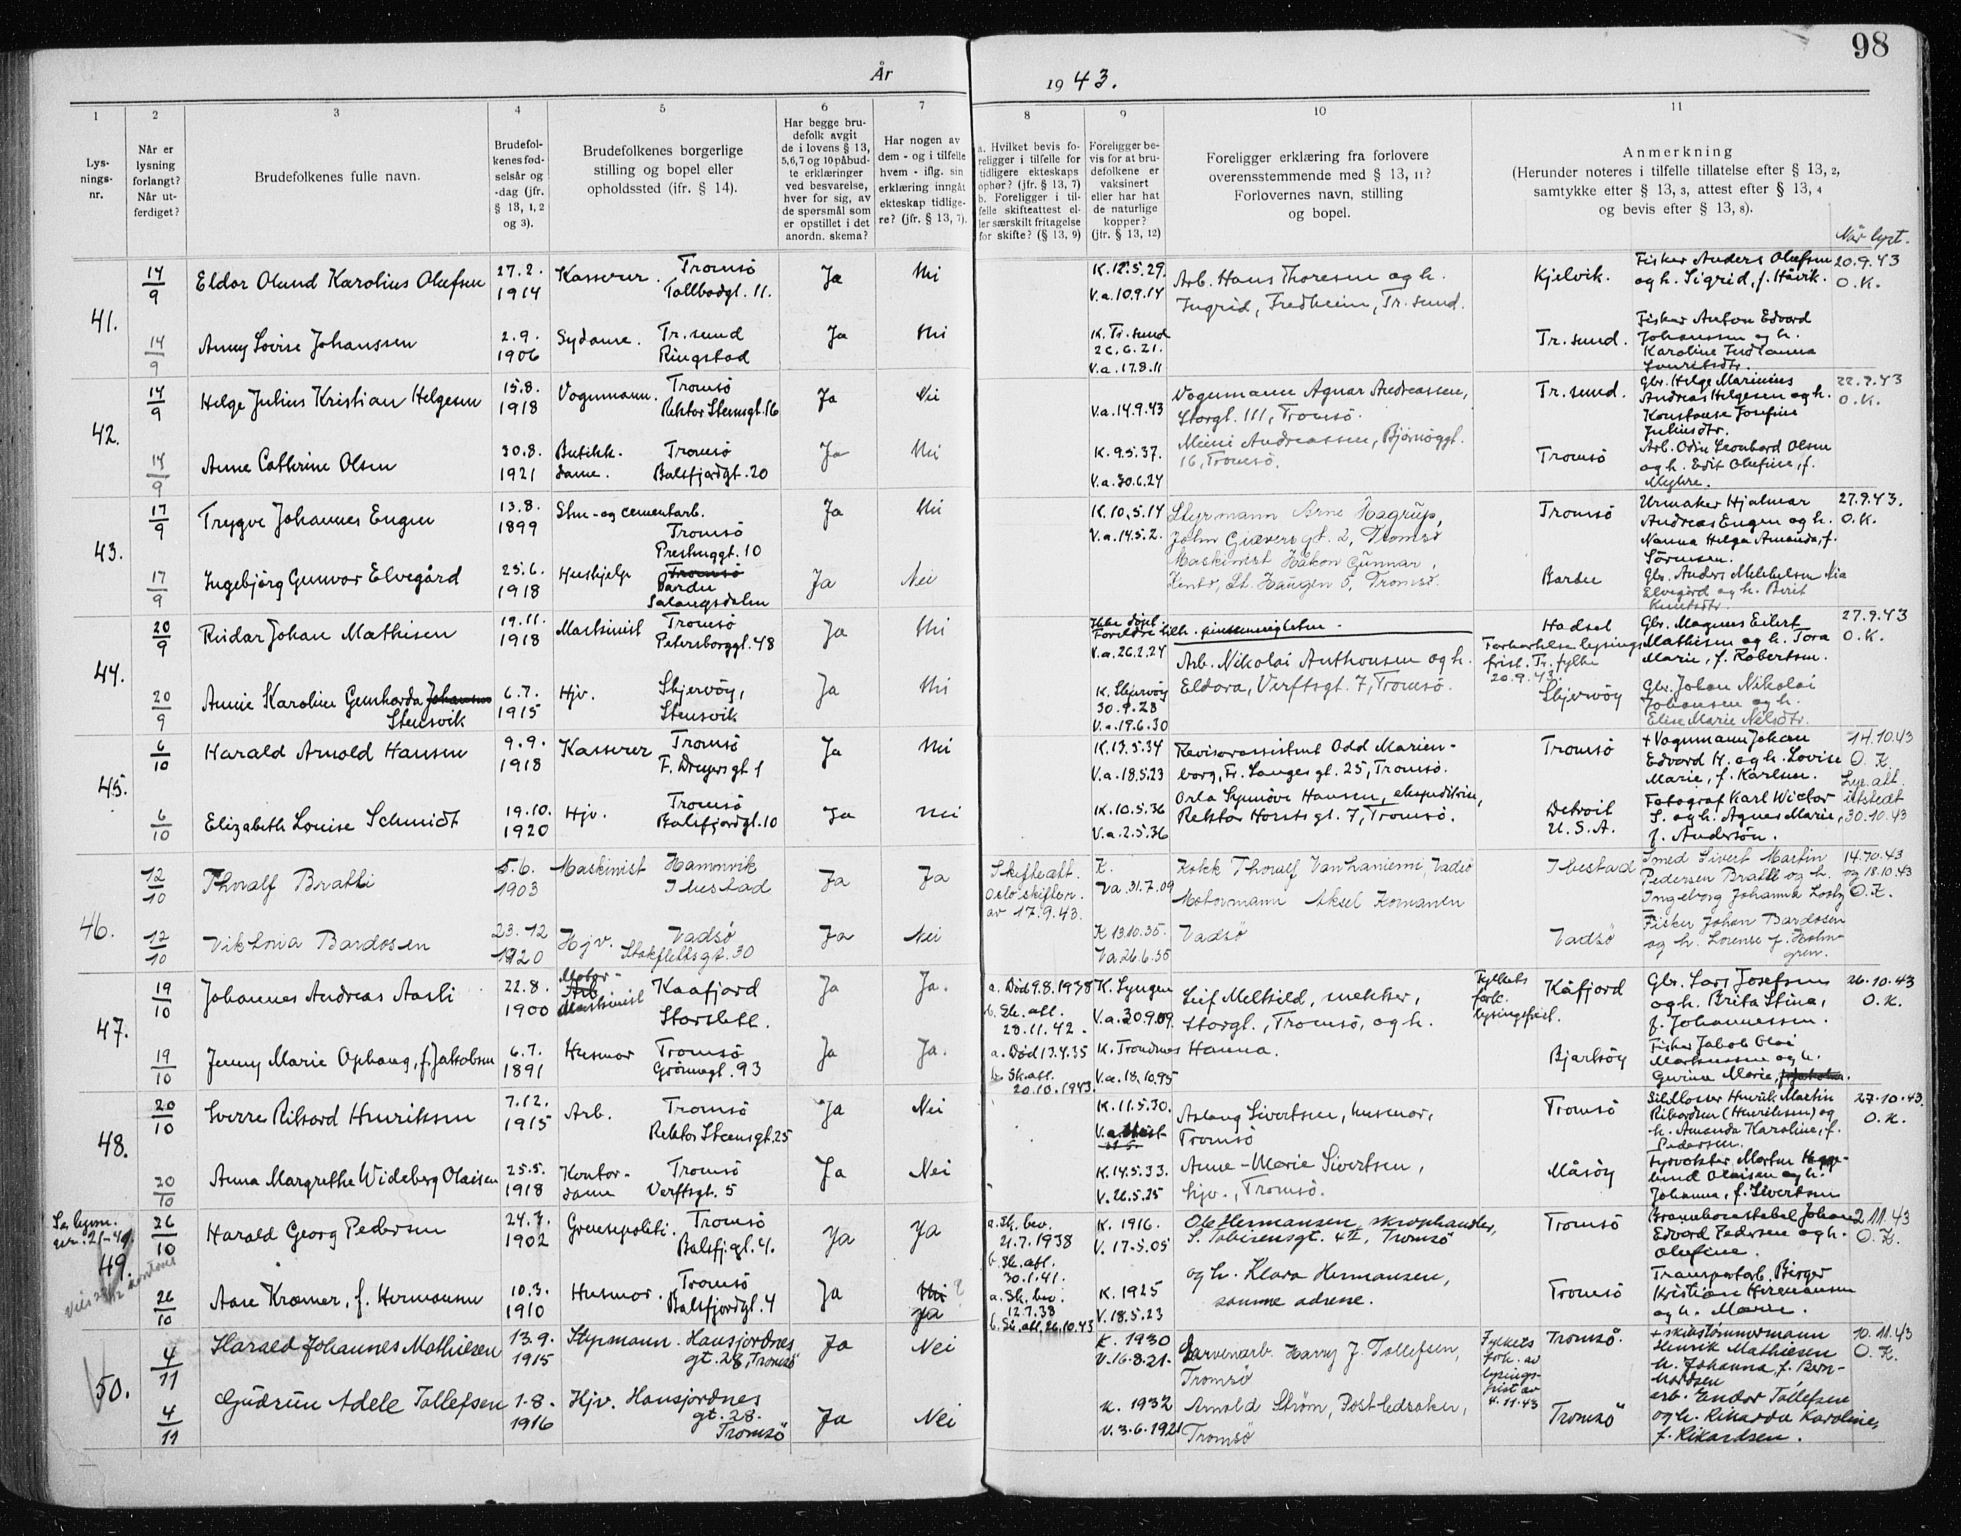 98
År 1943.
1 2 3 4 5 6 7 8 9 10 11
Lys-
nings-
nr.
Når er
lysning
forlangt?
Når ut-
ferdiget?
Brudefolkenes fulle navn.
Brudefol-
kenes fød-
selsår og
-dag (jfr.
§ 13, 1, 2
og 3).
Brudefolkenes borgerlige
stilling og bopel eller
opholdssted (jfr. § 14).
Har begge bru-
defolk avgit
de i lovens § 13,
5, 6, 7 og 10 påbud-
te erklæringer
ved besvarelse,
hver for sig, av
de spørsmål som
er opstillet i det
anordn. skema?
Har nogen av
dem - og i tilfelle
hvem - iflg. sin
erklæring inngått
ekteskap tidlige-
re? (jfr. § 13, 7).
a. Hvilket bevis fo-
religger i tilfelle for
tidligere ekteskaps
ophør? (jfr. § 13, 7)
b. Foreligger i til-
felle skifteattest el-
ler særskilt fritagelse
for skifte? (§ 13, 9)
Foreligger be-
vis for at bru-
defolkene er
vaksinert
eller har hat
de naturlige
kopper?
(jfr. § 13, 12)
Foreligger erklæring fra forlovere
overensstemmende med § 13, 11?
Forlovernes navn, stilling
og bopel.
Anmerkning
(Herunder noteres i tilfelle tillatelse efter § 13, 2,
samtykke efter § 13, 3, attest efter § 13, 4
og bevis efter § 13, 8).
Når lyst.
41.
14/9 Eldor Olund Karolius Olufsen 27.2. 1914 Kasserer. Tromsø Tollbodgt. 11. Ja Nei K. 12.5.29. V.a. 10.9.14 Arb. Hans Thoresen og h. Ingrid, Fredheim, Tr.sund. Kjelvik. Fisker Anders Olufsen og h. Sigrid, f. Håvik. 20.9.43 O.K.
14/9 Anny Lovise Johanssen 2.9. 1906 Sydame. Tr.sund Ringstad Ja Nei K. Tr.sund 26.6.21. V.a. 17.8.11 Tr.sund. Fisker Anton Edvard Johanssen og h. Karoline
42.
14/9 Helge Julius Kristian Helgesen 15.8. 1918 Vognmann. Tromsø Rektor Steensgt. 16 Ja Nei V.a. 14.9.43 Vognmann Agnar Andreassen, Storgt. 111, Tromsø. Tr.sund. Gbr. Helge Marinius Andreas Helgesen og h. Konstanse Josefine Juliusdtr. 22.9.43 O.K.
14/9 Anne Cathrine Olsen 30.8. 1921 Butikk-dame. Tromsø Balsfjordgt. 20 Ja Nei K. 9.5.37. V.a. 30.6.24 Mimi Andreassen, Bjørnøygt. 16, Tromsø. Tromsø Arb. Odin Leonhard Olsen og h. Edit Olufine, f. Myhre.
43.
17/9 Trygve Johannes Engen 13.8. 1899 Sten- og cementarb. Tromsø Prestenggt. 10 Ja Nei K. 10.5.14 V.a. 14.5.2. Styrmann Arne Hagrup, John Giæversgt. 2, Tromsø Tromsø Urmaker Hjalmar Andreas Engen og h. Nanna Helga Amanda, f. Sørensen. 27.9.43. O.K.
17/9 Ingebjörg Gunvor Elvegård 25.6. 1918 Hushjelp Tromsö Bardu Salangsdalen Ja Nei Maskinist Håkon Gunnar, St. Haugen 5, Tromsø. Bardu Gbr. Anders Mikkelsen Elvegård og h. Berit Knutsdtr.
44.
20/9 Reidar Johan Mathisen 19.11. 1918 Maskinist Tromsø Petersborggt. 48 Ja Nei V.a. 26.2.24 Arb. Nikolai Anthonsen og h. Eldora, Verftsgt. 7, Tromsø. Hadsel Gbr. Magnus Eilert Mathisen og h. Tora Marie, f. Robertsen. 27.9.43 O.K.
Forkortelse lysings frist. Tr. fylke 20.9.43.
20/9 Annie Karoline Gunharda Johansen Stensvik 6.7. 1915 Hjv. Skjervøy, Stensvik Ja Nei K. Skjervøy 30.9.28 V.a. 19.6.30 Skjervöy Gbr. Johan Nikolai Johansen og h. Elise Marie Nilsdtr.
45.
6/10 Harald Arnold Hansen 9.9. 1918 Kasserer Tromsø F. Dreyersgt 1 Ja Nei K. 13.5.34 V.a. 18.5.23 Revisorassistent Odd Marien-borg, Fr. Langesgt. 25, Tromsø. Tromsø + Vognmann Johan Edvard H. og h. Lovise Marie, f. Karlsen. 14.10.43 O.K. Lys.att. utstedt 30.10.43
6/10 Elizabeth Louise Schmidt 19.10. 1920 Hjv. Tromsø Balsfjordgt. 10 Ja Nei K. 10.5.36 V.a. 2.5.36 Orla Synnöve Hansen, ekspeditrise, Rektor Horstsgt. 7, Tromsø. Detroit U.S.A. Fotograf Karl Wictor S. og h. Agnes Marie, f. Andersön.
46.
12/10 Thoralf Bratli 5.6. 1903 Maskinist Hamnvik Ibestad Ja Ja Skifteatt. Oslo skifterr. av 17.9.43. K. Va. 31.7.09 Kokk Thoralf Vanhaniemi, Vadsø Ibestad Smed Sivert Martin Pedersen Bratli og h. Ingeborg Johanna 14.10.43 og 18.10.43 O.K.
12/10 Viktoria Bardosen 23.12 1920 Hjv. Vadsø Stokflethsgt. 30 Ja Nei K 13.10.35. Va. 26.6.35 Motormann Aksel Komanen Vadsø Vadsø Fisker Johan Bardosen og h. Lorense f. Holm-gren.
47.
19/10 Johannes Andreas Aasli 22.8. 1900 Motor- Arb. Maskinist Kaafjord Storslett. Ja Ja. a. Død 9.8.1938 b. Sk.att. 28.11.42. K. Lyngen V.a. 30.9.09. Leif Melkild, snekker, Storgt., Tromsø, og h. Hanna. Fylkets fork. lysingsfrist. Kåfjord Gbr. Lars Josefsen og h. Brita Stina, f. Johannessen. 26.10.43 O.K.
19/10 Jenny Marie Ophaug, f. Jakobsen 6.7. 1891 Husmor Tromsø Grönnegt. 93 Ja Ja. a. Død 13.4.35 b. Sk.att. 20.10.1943. K. Trondnes V.a. 18.10.95 Bjarköy Fisker Jakob Olai Markussen og h. Gurine Marie,
48.
20/10 Sverre Rikard Henriksen 7.12. 1915 Arb. Tromsø Rektor Steensgt. 25 Ja Nei K. 11.5.30. Aslaug Sivertsen, husmor, Tromsø Tromsø Henrik Martin Rikardsen (Henriksen) og h. Amanda Karoline, f. Pedersen. 27.10.43. O.K.
20/10 Anna Margrethe Wideberg Olaisen 25.5. 1918 Kontor-dame Tromsø Verftsgt. 5 Ja Nei K. 14.5.33. V. 26.5.25 Anne-Marie Sivertsen, hjv., Tromsø. Måsöy Fyrvokter Morten Olaisen og h. Johanna, f. Sivertsen
49.
26/10 Harald Georg Pedersen 24.7. 1902 Grensepoliti. Tromsø Balsfj.gt. 4. Ja Ja a. Sk. bev. 21.7.1938 b. Sk.att. 30.1.41. K. 1916. V. 17.5.05 Ole Hermansen, skraphandler, S. Tobiesensgt. 4 II, Tromsø Tromsø Johan Edvard Pedersen og h. Olufine. 2.11.43 O.K.
26/10 Aase Kræmer, f. Hermansen 10.3. 1910 Husmor. Tromsø Balsfjordgt. 4 Ja Nei? Ja a. Sk. bev. 12.7.38 b. Sk.att. 26.10.43 K. 1925 V. 18.5.23 og h. Klara Hermansen, samme adresse. Tromsø Transportarb. Birger Kristian Hermansen og h. Marie.
50.
4/11 Harald Johannes Mathiesen 13.9. 1915 Styrmann. Hansjordnes gt. 28, Tromsö Ja Nei K. 1930 V. 16-8.21. Garverarb. Harry J. Tollefsen, Tromsø Fylkets fork. av lysings-frist av 4.11.43 Tromsø. + skibstømmermann Henrik Mathiesen h. Johanna, f. Bern-hardsen 10.11.43 O.K.
4/11 Gudrun Adele Tollefsen 1-8. 1916 Hjv. Hansjordnes gt. 28. Tromsö Ja Nei K. 1932 V. 3-6.1921 Arnold Strøm, Post- Tromsö Tromsö arb. Endor Tollefsen og h. Rikarda Karoline, f. Rikardsen.